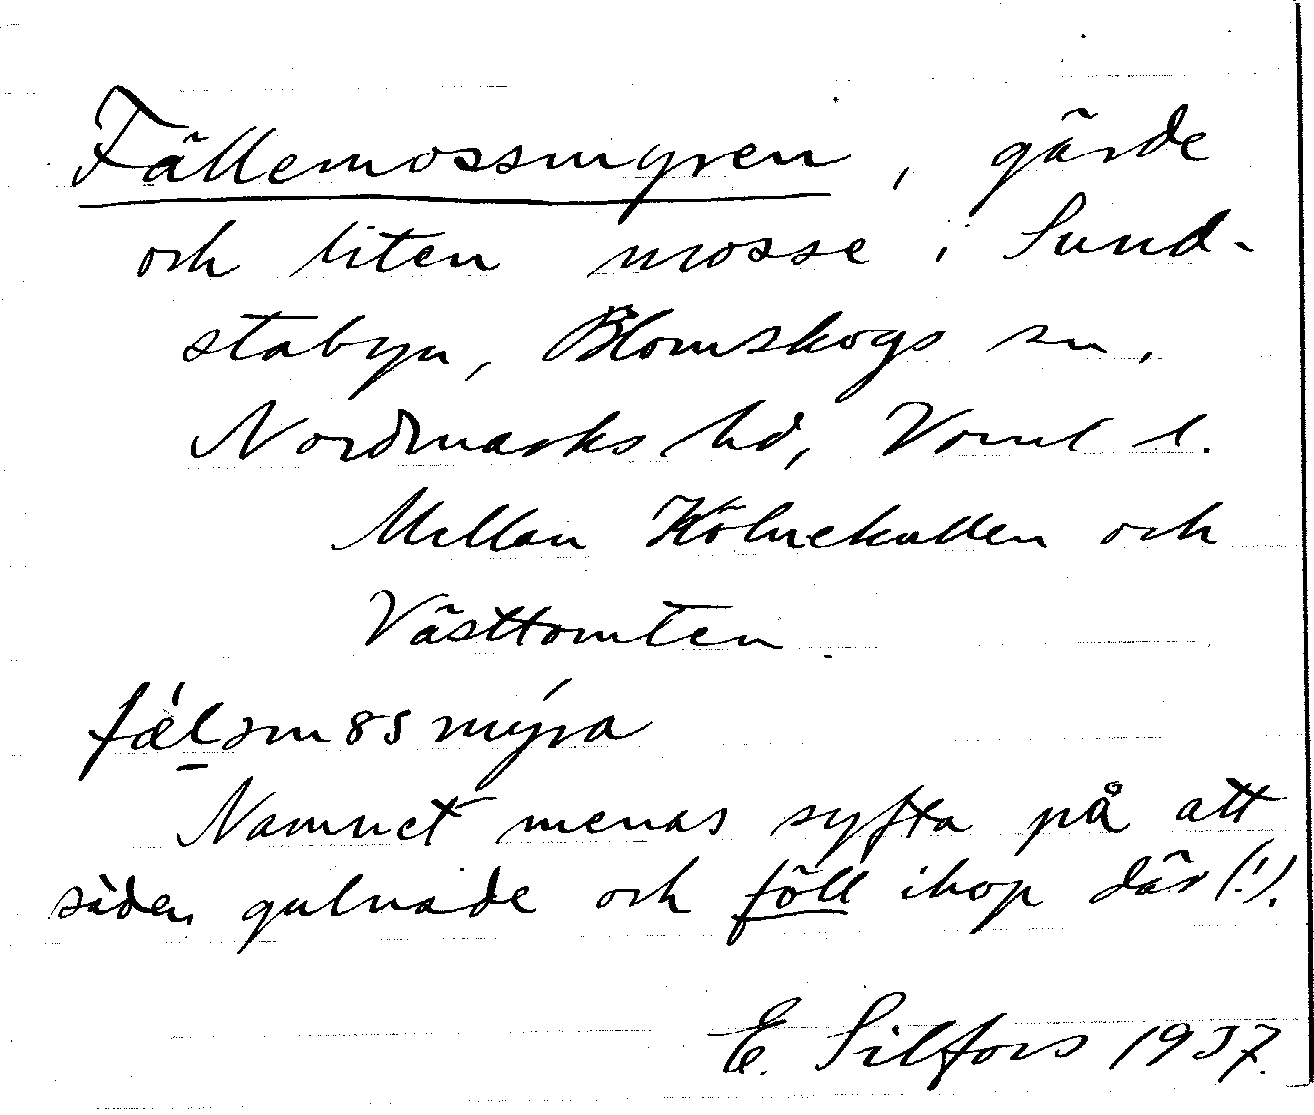 Fällemossmyren, gärde
och liten mosse i Sund-
stabyn, Blomskogs sn,
Nordmarks hd, Vrml l.
Mellan Kölnekullen och
Västtomten.
fæ̀ləm8smýra
Namnet menas syfta på att
säden gulnade och föll ihop där (!).
E. Silfors 1937.